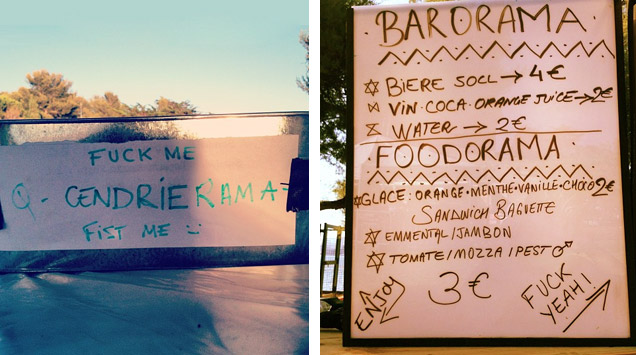 FUCK ME
Q - CENDRIERAMA
FIST ME
BARORAMA
BIERE 50CL → 4€
VIN · COCA · ORANGE JUICE → 2€
WATER → 2€
FOODORAMA
GLACE: ORANGE · MENTHE · VANILLE · CHOCO 2€
SANDWICH BAGUETTE
EMMENTAL/JAMBON
TOMATE/MOZZA/PESTO
3€
ENJOY
FUCK
YEAH!